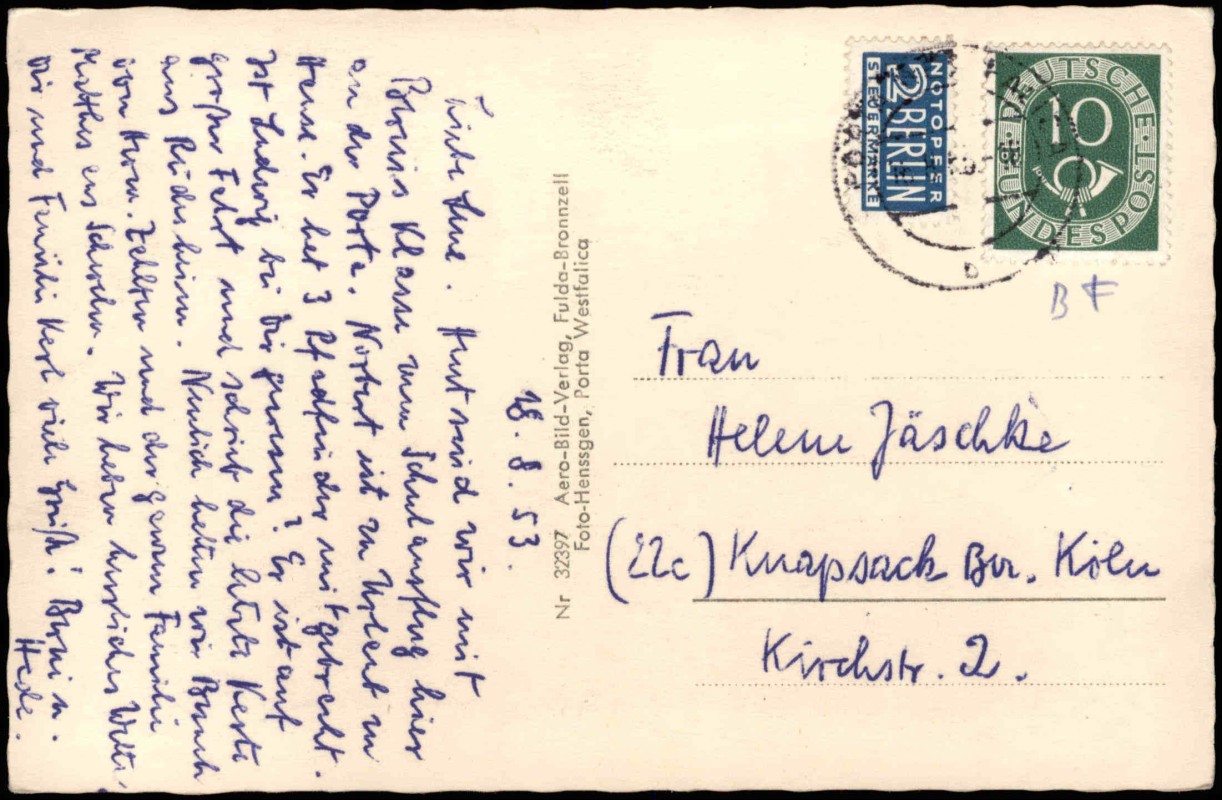 18. 8. 53.
Liebe Lene. Heut sind wir mit
Klasse zum Schulausflug hier
an der Porta. Norbert ist zu Urlaub zu
Hause. Er hat 3 Pfadfinder mitgebracht.
Ist Ludwig bei Dir gewesen? Er ist auf
großer Fahrt und schrieb die letzte Karte
aus Rüdesheim. Neulich hatten wir Besuch
von Herrn und der ganzen Familie
aus Schweden. Wir haben herrliches Wetter.
Dir und Familie Karl viele Grüße! u.
Hede.
Nr 32397 Aero-Bild-Verlag, Fulda-Bronnzell
Foto-Henssgen, Porta Westfalica
NOTOPFER
2 BERLIN
STEUERMARKE
DEUTSCHE
10
BUNDESPOST
PORTA
b
B F
Frau
Helene Jäschke
(22c) Knapsack Bez. Köln
Kirchstr. 2.